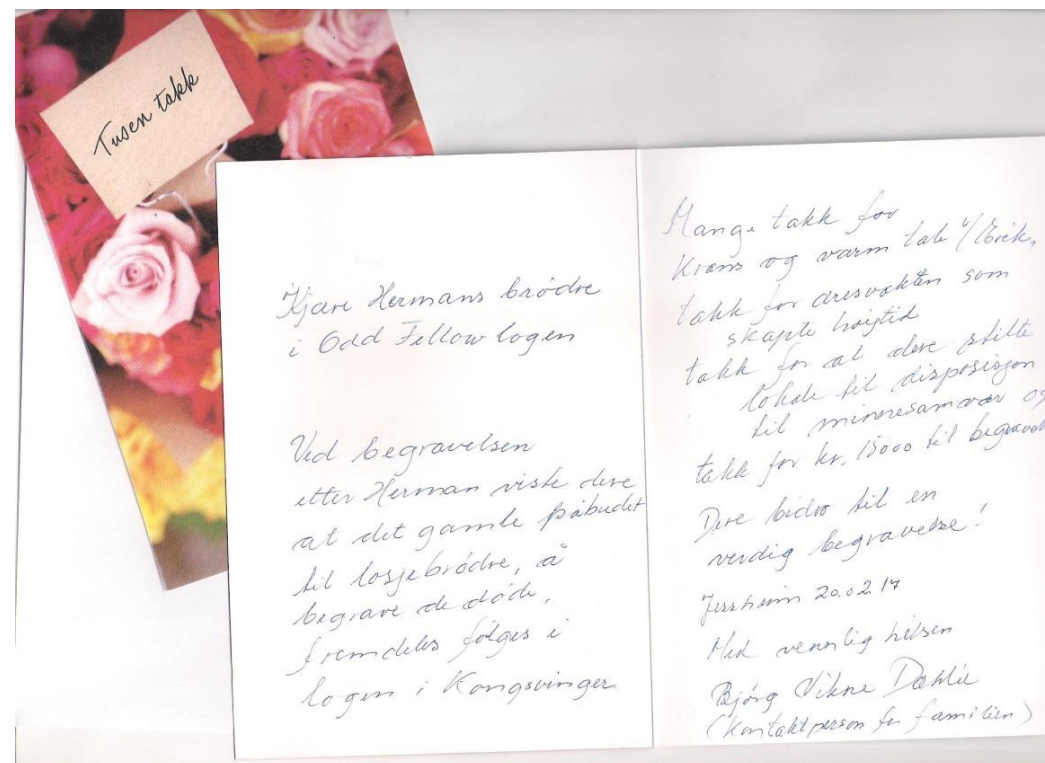 Tusen takk
Kjære Hermans brødre
i Odd Fellow logen
Ved begravelsen
etter Herman viste dere
at det gamle påbudet
til losjebrødre, å
begrave de døde,
fremdeles følges i
logen i Kongsvinger
Mange takk for
Krans og varm tale v/Eirik,
takk for æresvakten som
skapte høigtid
takk for at dere stilte
lokale til disposisjon
til minnesamvær og
takk for kr. 15000 til
Dere bidro til en
verdig begravelse!
Jessheim 20.02.17
Med vennlig hilsen
Bjørg Vikne Dæhlie
(Kontaktperson for familien)